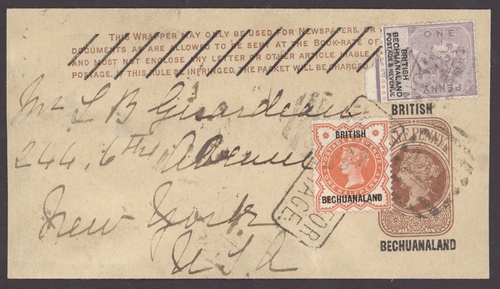 THIS WRAPPER MAY ONLY BE USED FOR NEWSPAPERS, OR
DOCUMENTS AS ARE ALLOWED TO BE SENT AT THE BOOK-RATE OF
AND MUST NOT ENCLOSE ANY LETTER OR OTHER ARTICLE
POSTAGE. IF THIS RULE BE INFRINGED, THE PACKET WILL BE CHARGED
ONE
PENNY
BRITISH
BECHUANALAND
POSTAGE & REVENUE
BRITISH
HALFPENNY
BECHUANALAND
BRITISH
BECHUANALAND
Mr L B Girardeau
244. 6th Avenue
New York
USA